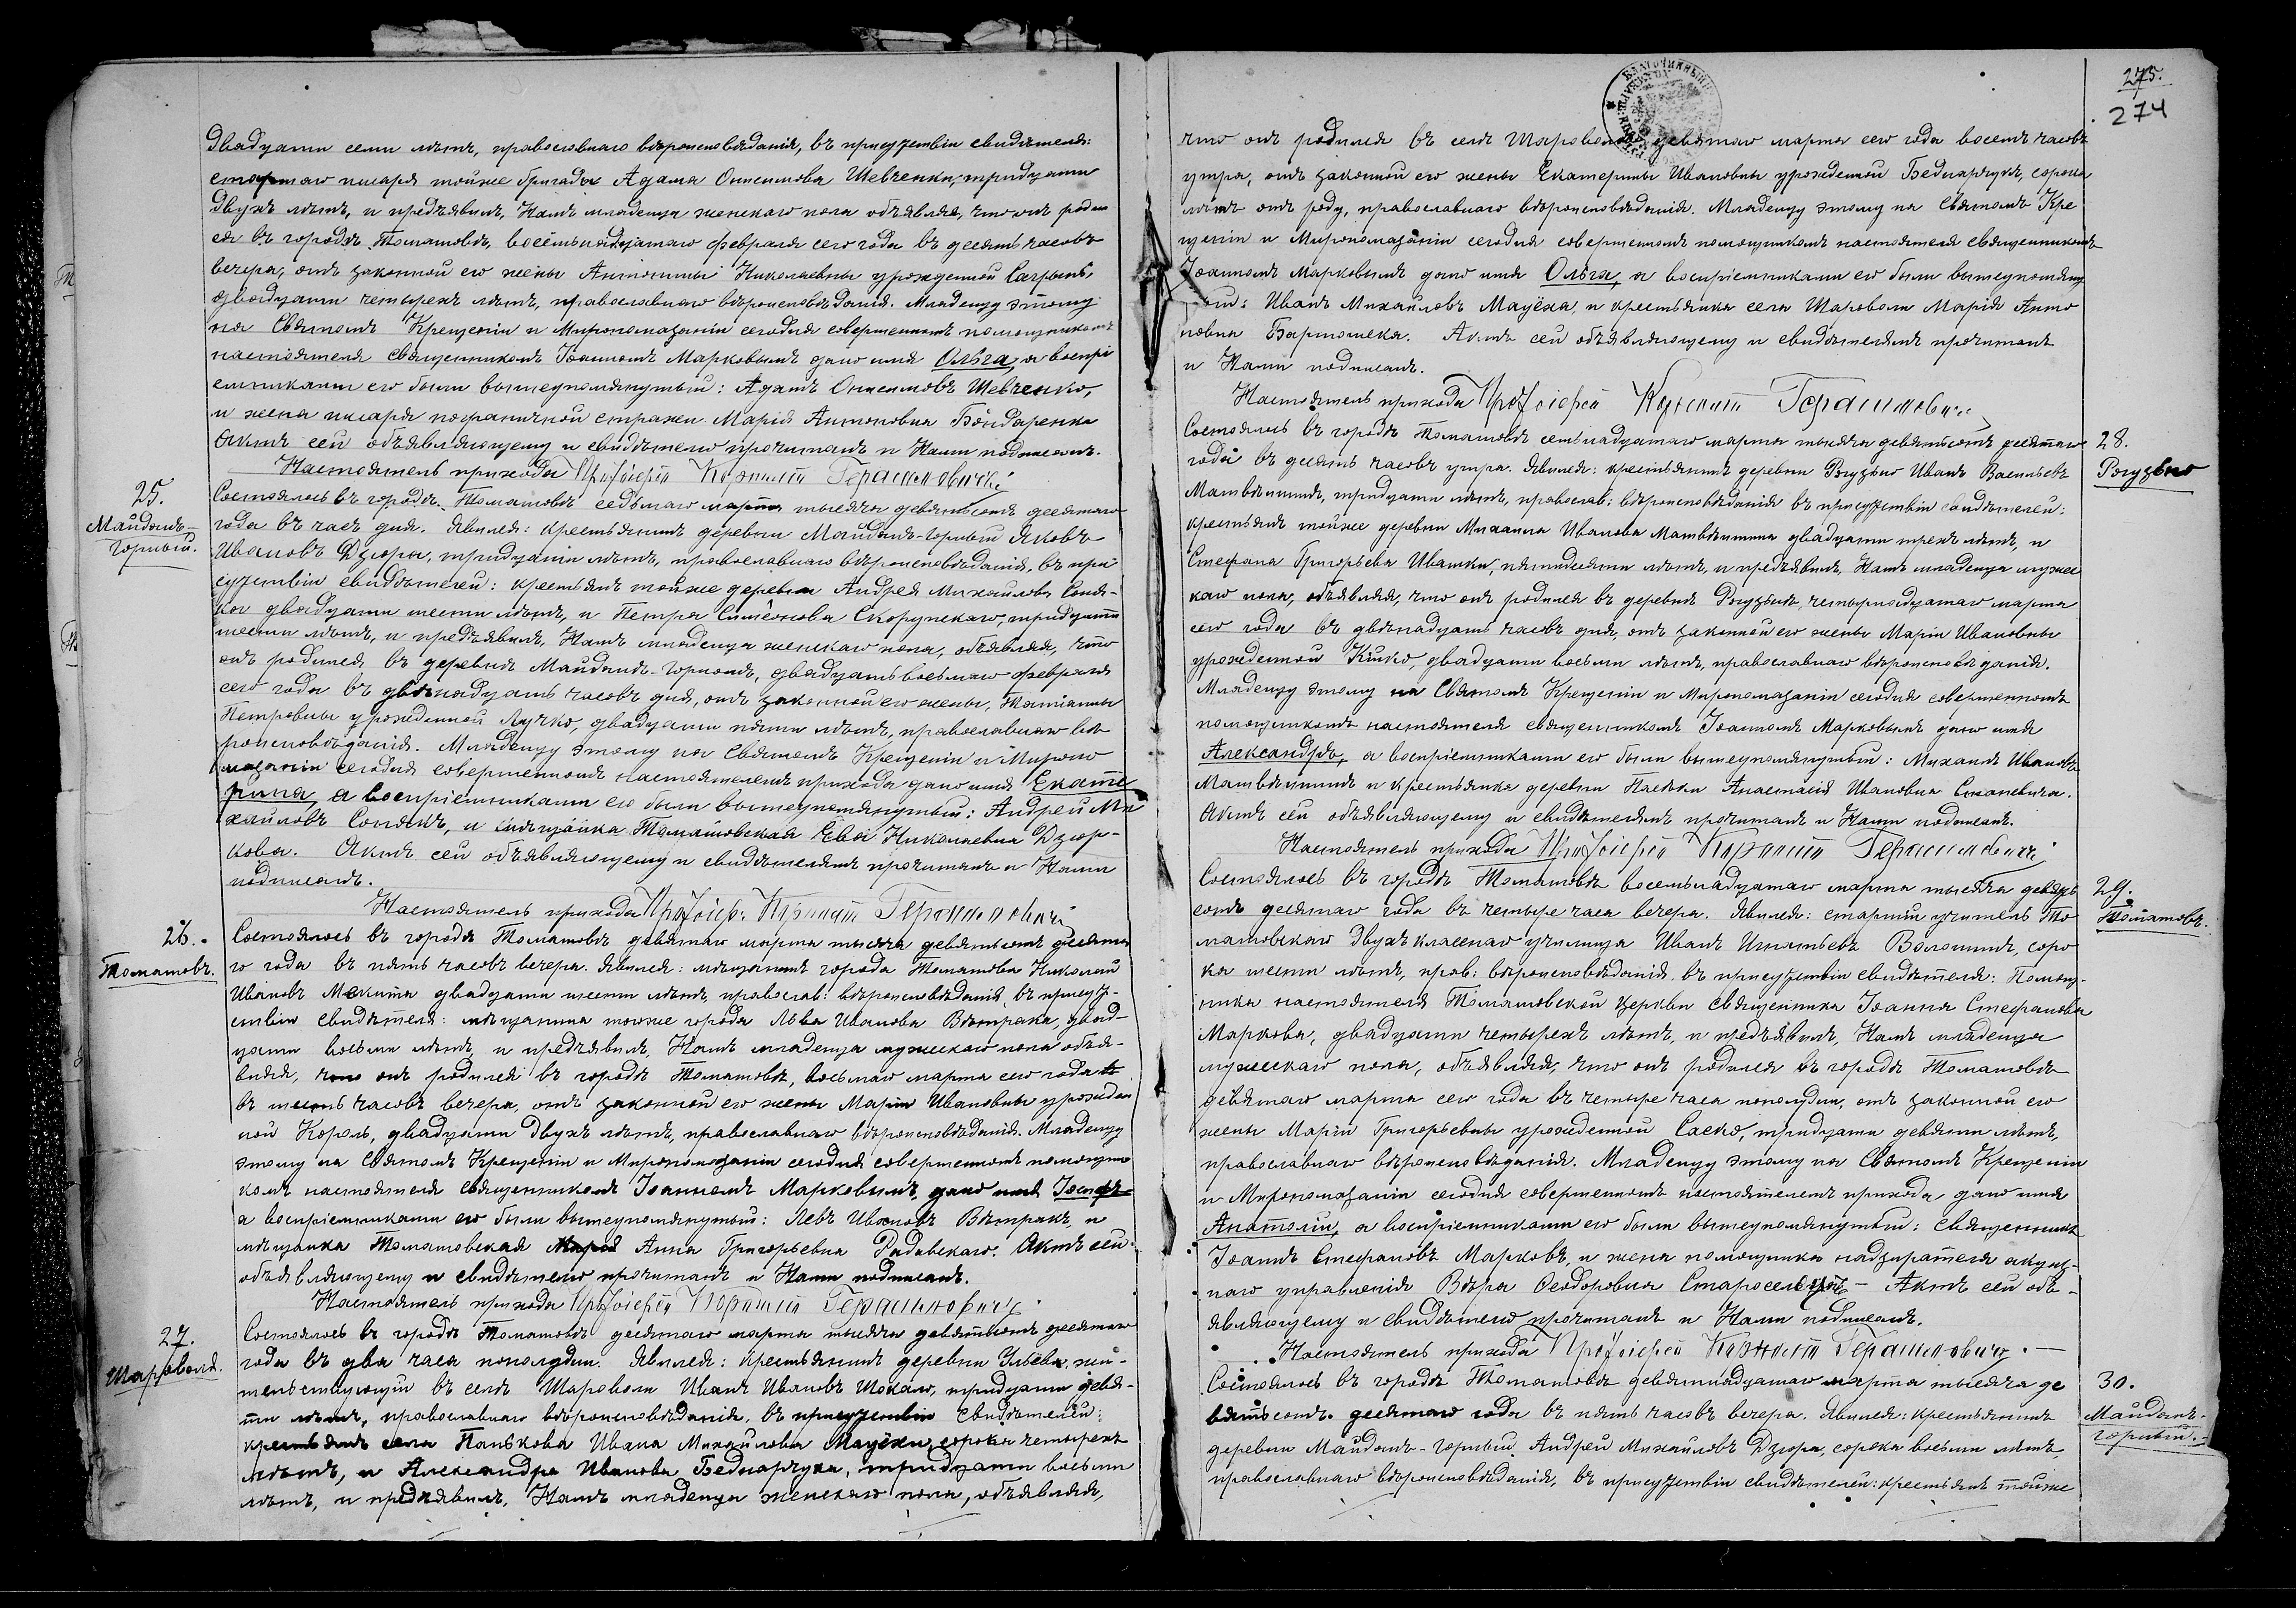 двадцати семи лѣтъ, православнаго вѣроисповѣданія, въ присутствіи свидѣтеля:
старшаго писаря тойже бригады Адама Онисимова Шевченки, тридцати
двухъ лѣтъ, и предъявилъ, Намъ младенца женскаго пола объявляя, что онъ роди
ся въ городѣ Томашовѣ, восемьнадцатаго февраля сего года въ десять часовъ
вечера, отъ законной его жены Антонины Николаевны урожденной
двадцати четырехъ лѣтъ, православнаго вѣроисповѣданія. Младенцу этому
на Святомъ Крещеніи и Миропомазаніи сегодня совершенномъ помощникомъ
настоятеля священникомъ Іоанномъ Марковымъ дано имя Ольга, а воспрі
емниками его были вышеупомянутый: Адамъ Онисимовъ Шевченко,
и жена писаря пограничной стражи Марія Антоновна Бондаренка
Актъ сей объявляющему и свидѣтелю прочитанъ и Нами подписанъ.
Настоятель прихода Протоіерей Корнилій Герасимовичъ
25.
Майданъ-
горный.
Состоялось въ городѣ Томашовѣ седьмаго марта тысяча девятьсотъ десятаго
года въ часъ дня. Явился: крестьянинъ деревни Майданъ-горный Яковъ
Ивановъ Дзюра, тридцати лѣтъ, православнаго вѣроисповѣданія, въ при
сутствіи свидѣтелей: крестьянъ тойже деревни Андрея Михайлова Соня-
ка двадцати шести лѣтъ, и Петра Симеонова Скорупскаго, тридцати
шести лѣтъ, и предъявилъ, Намъ младенца женскаго пола, объявляя, что
онъ родился въ деревнѣ Майданѣ-горномъ, двадцать восьмаго февраля
сего года въ двѣнадцать часовъ дня, отъ законной его жены, Татіанны
Петровны урожденной Лучко, двадцати пяти лѣтъ, православнаго вѣ
роисповѣданія. Младенцу этому на Святомъ Крещеніи и Миропо
мазаніи сегодня совершенномъ настоятелемъ прихода дано имя Екате
рина, а воспріемниками его были вышеупомянутый: Андрей Ми
хайловъ Сонякъ, и мѣщанка Томашовская Ева Николаевна Дзюр-
кова. Актъ сей объявляющему и свидѣтелямъ прочитанъ и Нами
подписанъ.
Настоятель прихода Протоіерей Корнилій Герасимовичъ
26.
Томашовъ.
Состоялось въ городѣ Томашовѣ девятаго марта тысяча девятьсотъ десята
го года въ пять часовъ вечера. Явился: мѣщанинъ города Томашова Николай
Ивановъ Микита двадцати шести лѣтъ, православ: вѣроисповѣданія, въ присут-
ствіи свидѣтеля: мѣщанина тогоже города Льва Иванова Вѣтрака, двад-
цати восьми лѣтъ, и предъявилъ, Намъ младенца мужескаго пола объя-
вляя, что онъ родился въ городѣ Томашовѣ, восьмаго марта сего года
въ шесть часовъ вечера, отъ законной его жены Маріи Ивановны урожден
ной Король, двадцати двухъ лѣтъ, православнаго вѣроисповѣданія. Младенцу
этому на Святомъ Крещеніи и Миропомазаніи сегодня совершенномъ помощни
комъ настоятеля священникомъ Іоанномъ Марковымъ, дано имя Іосифъ
а воспріемниками его были вышеупомянутый: Левъ Ивановъ Вѣтракъ, и
мѣщанка Томашовская Анна Григорьевна Радавская. Актъ сей
объявляющему и свидѣтелю прочитанъ и Нами подписанъ.
Настоятель прихода Протоіерей Корнилій Герасимовичъ
27.
Шароволя.
Состоялось въ городѣ Томашовѣ десятаго марта тысяча девятьсотъ десятаго
года въ два часа пополудни. Явился: крестьянинъ деревни Ульёва, жи-
тельствующій въ селѣ Шароволи Иванъ Ивановъ Шокало, тридцати девя-
ти лѣтъ, православнаго вѣроисповѣданія, въ присутствіи свидѣтелей:
крестьянъ села Панькова Ивана Михайлова Мацёхи, сорока четырехъ
лѣтъ, и Александра Иванова Беднарчука, тридцати восьми
лѣтъ, и предъявилъ, Намъ младенца женскаго пола, объявляя,
275.
274
что онъ родился въ селѣ Шароволѣ девятаго марта сего года восемь часовъ
утра, отъ законной его жены Екатерины Ивановны урожденной Беднарчукъ, сорока
лѣтъ отъ роду, православнаго вѣроисповѣданія. Младенцу этому на Святомъ Кре
щеніи и Миропомазаніи сегодня совершенномъ помощникомъ настоятеля священникомъ
Іоанномъ Марковымъ дано имя Ольга, а воспріемниками его были вышеупомяну
тый: Иванъ Михайловъ Мацёха, и крестьянка села Шароволи Марія Анто
новна Бартошека. Актъ сей объявляющему и свидѣтелямъ прочитанъ
и Нами подписанъ.
Настоятель прихода Протоіерей Корнилій Герасимовичъ
28.
Рогузьно
Состоялось въ городѣ Томашовѣ семьнадцатаго марта тысяча девятьсотъ десятаго
года въ десять часовъ утра. Явился: крестьянинъ деревни Рогузьно Иванъ Васильевъ
Матвѣишинъ, тридцати лѣтъ, православ: вѣроисповѣданія въ присутствіи свидѣтелей:
крестьянъ тойже деревни Михаила Иванова Матвѣишина двадцати трехъ лѣтъ, и
Стефана Григорьева Ивашки, пятидесяти лѣтъ, и предъявилъ, Намъ младенца мужес
каго пола, объявляя, что онъ родился въ деревнѣ Рогузьнѣ, четырнадцатаго марта
сего года въ двѣнадцать часовъ дня, отъ законной его жены Маріи Ивановны
урожденной Кицко, двадцати восьми лѣтъ, православнаго вѣроисповѣданія.
Младенцу этому на Святомъ Крещеніи и Миропомазаніи сегодня совершенномъ
помощникомъ настоятеля священникомъ Іоанномъ Марковымъ дано имя
Александръ, а воспріемниками его были вышеупомянутый: Михаилъ Ивановъ
Матвѣишинъ и крестьянка деревни Пасѣки Анастасія Ивановна Станевича.
Актъ сей объявляющему и свидѣтелямъ прочитанъ и Нами подписанъ.
Настоятель прихода Протоіерей Корнилій Герасимовичъ
29.
Томашовъ.
Состоялось въ городѣ Томашовѣ восемьнадцатаго марта тысяча девять
сотъ десятаго года въ четыре часа вечера. Явился: старшій учитель То
машовскаго двухъ класснаго училища Иванъ Игнатьевъ Волошинъ, соро
ка шести лѣтъ, прав: вѣроисповѣданія въ присутствіи свидѣтеля: Помощ-
ника настоятеля Томашовской церкви священника Іоанна Стефанова
Маркова, двадцати четырехъ лѣтъ, и предъявилъ, Намъ младенца
мужескаго пола, объявляя, что онъ родился въ городѣ Томашовѣ
девятаго марта сего года въ четыре часа пополудни, отъ законной его
жены Маріи Григорьевны урожденной Саско, тридцати девяти лѣтъ,
православнаго вѣроисповѣданія. Младенцу этому на Святомъ Крещеніи
и Миропомазаніи сегодня совершенномъ настоятелемъ прихода дано имя
Анатолій, а воспріемниками его были вышеупомянутый: священникъ
Іоаннъ Стефановъ Марковъ, и жена помощника надзирателя акциз-
наго управленія Вѣра Ѳеодоровна Старосельцъ — Актъ сей объ-
являющему и свидѣтелю прочитанъ и Нами подписанъ.
Настоятель прихода Протоіерей Корнилій Герасимовичъ. —
30.
Майданъ-
горный.
Состоялось въ городѣ Томашовѣ девятнадцатаго марта тысяча де
вятьсотъ десятаго года въ пять часовъ вечера. Явился: крестьянинъ
деревни Майданъ-горный Андрей Михайловъ Дзюра, сорока восьми лѣтъ,
православнаго вѣроисповѣданія, въ присутствіи свидѣтелей: крестьянъ тойже